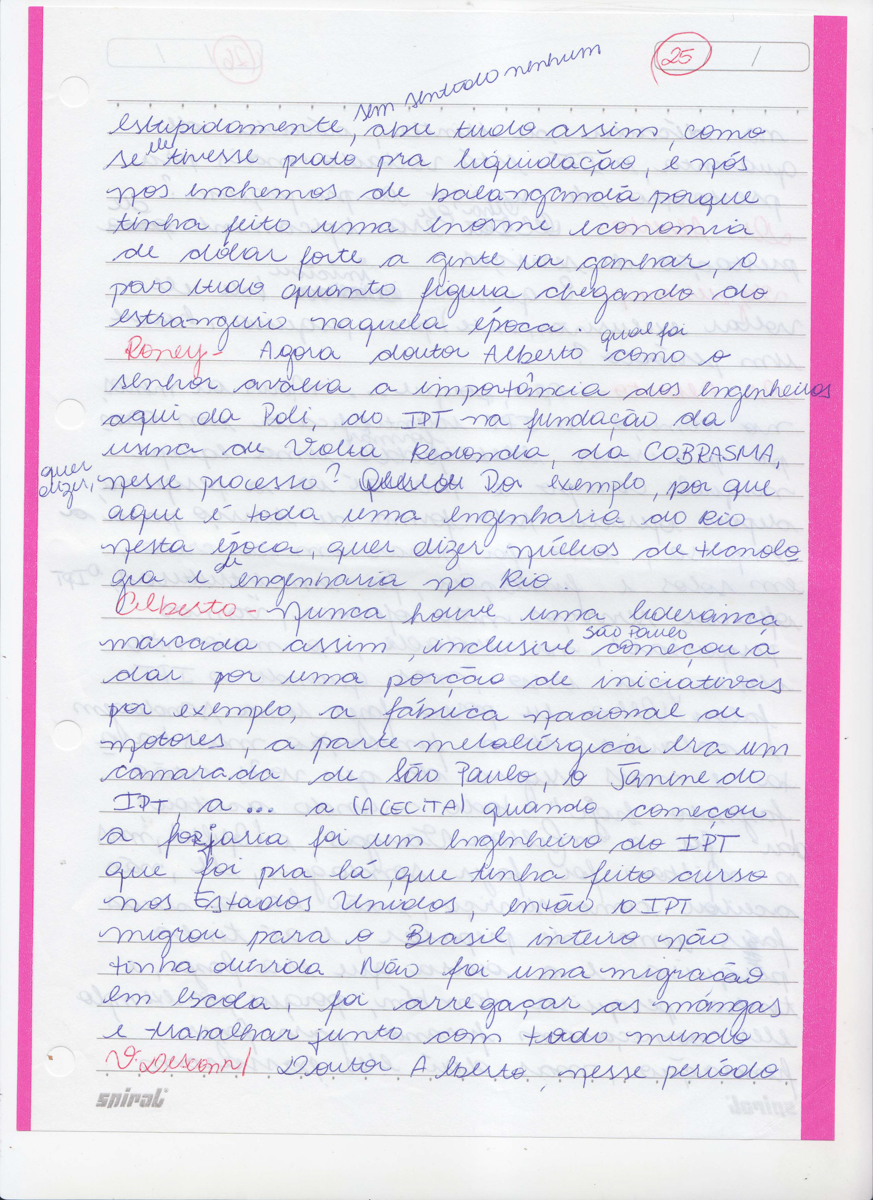 25 /
sem sentido nenhum
estupidamente, abre tudo assim, como
se ele tivesse prato pra liquidação, e nós
nos enchemos de balangandã porque
tinha feito uma enorme economia
de dólar forte a gente ia ganhar, o
para tudo quanto figura chegando do
estrangeiro naquela época.
Roney - Agora doutor Alberto qual foi como o
senhor avalia a importância dos engenheiros
aqui da Poli, do IPT na fundação da
usina de Volta Redonda, da COBRASMA,
quer dizer, nesse processo? Por exemplo, por que
aqui é toda uma engenharia do Rio
nesta época, quer dizer núcleos de tecnolo
gia e de engenharia no Rio.
Alberto - Nunca houve uma liderança
marcada assim, inclusive São Paulo começou a
dar por uma porção de iniciativas
por exemplo, a fábrica nacional de
motores, a parte metalúrgica era um
camarada de São Paulo, o Janine do
IPT, a... a (ACECITA) quando começou
a forjaria foi um engenheiro do IPT
que foi pra lá, que tinha feito curso
nos Estados Unidos, então o IPT
migrou para o Brasil inteiro não
tinha dúvida Não foi uma migração
em escola, foi arregaçar as mangas
e trabalhar junto com todo mundo
V. Desconn/ Doutor Alberto, nesse período
spiral